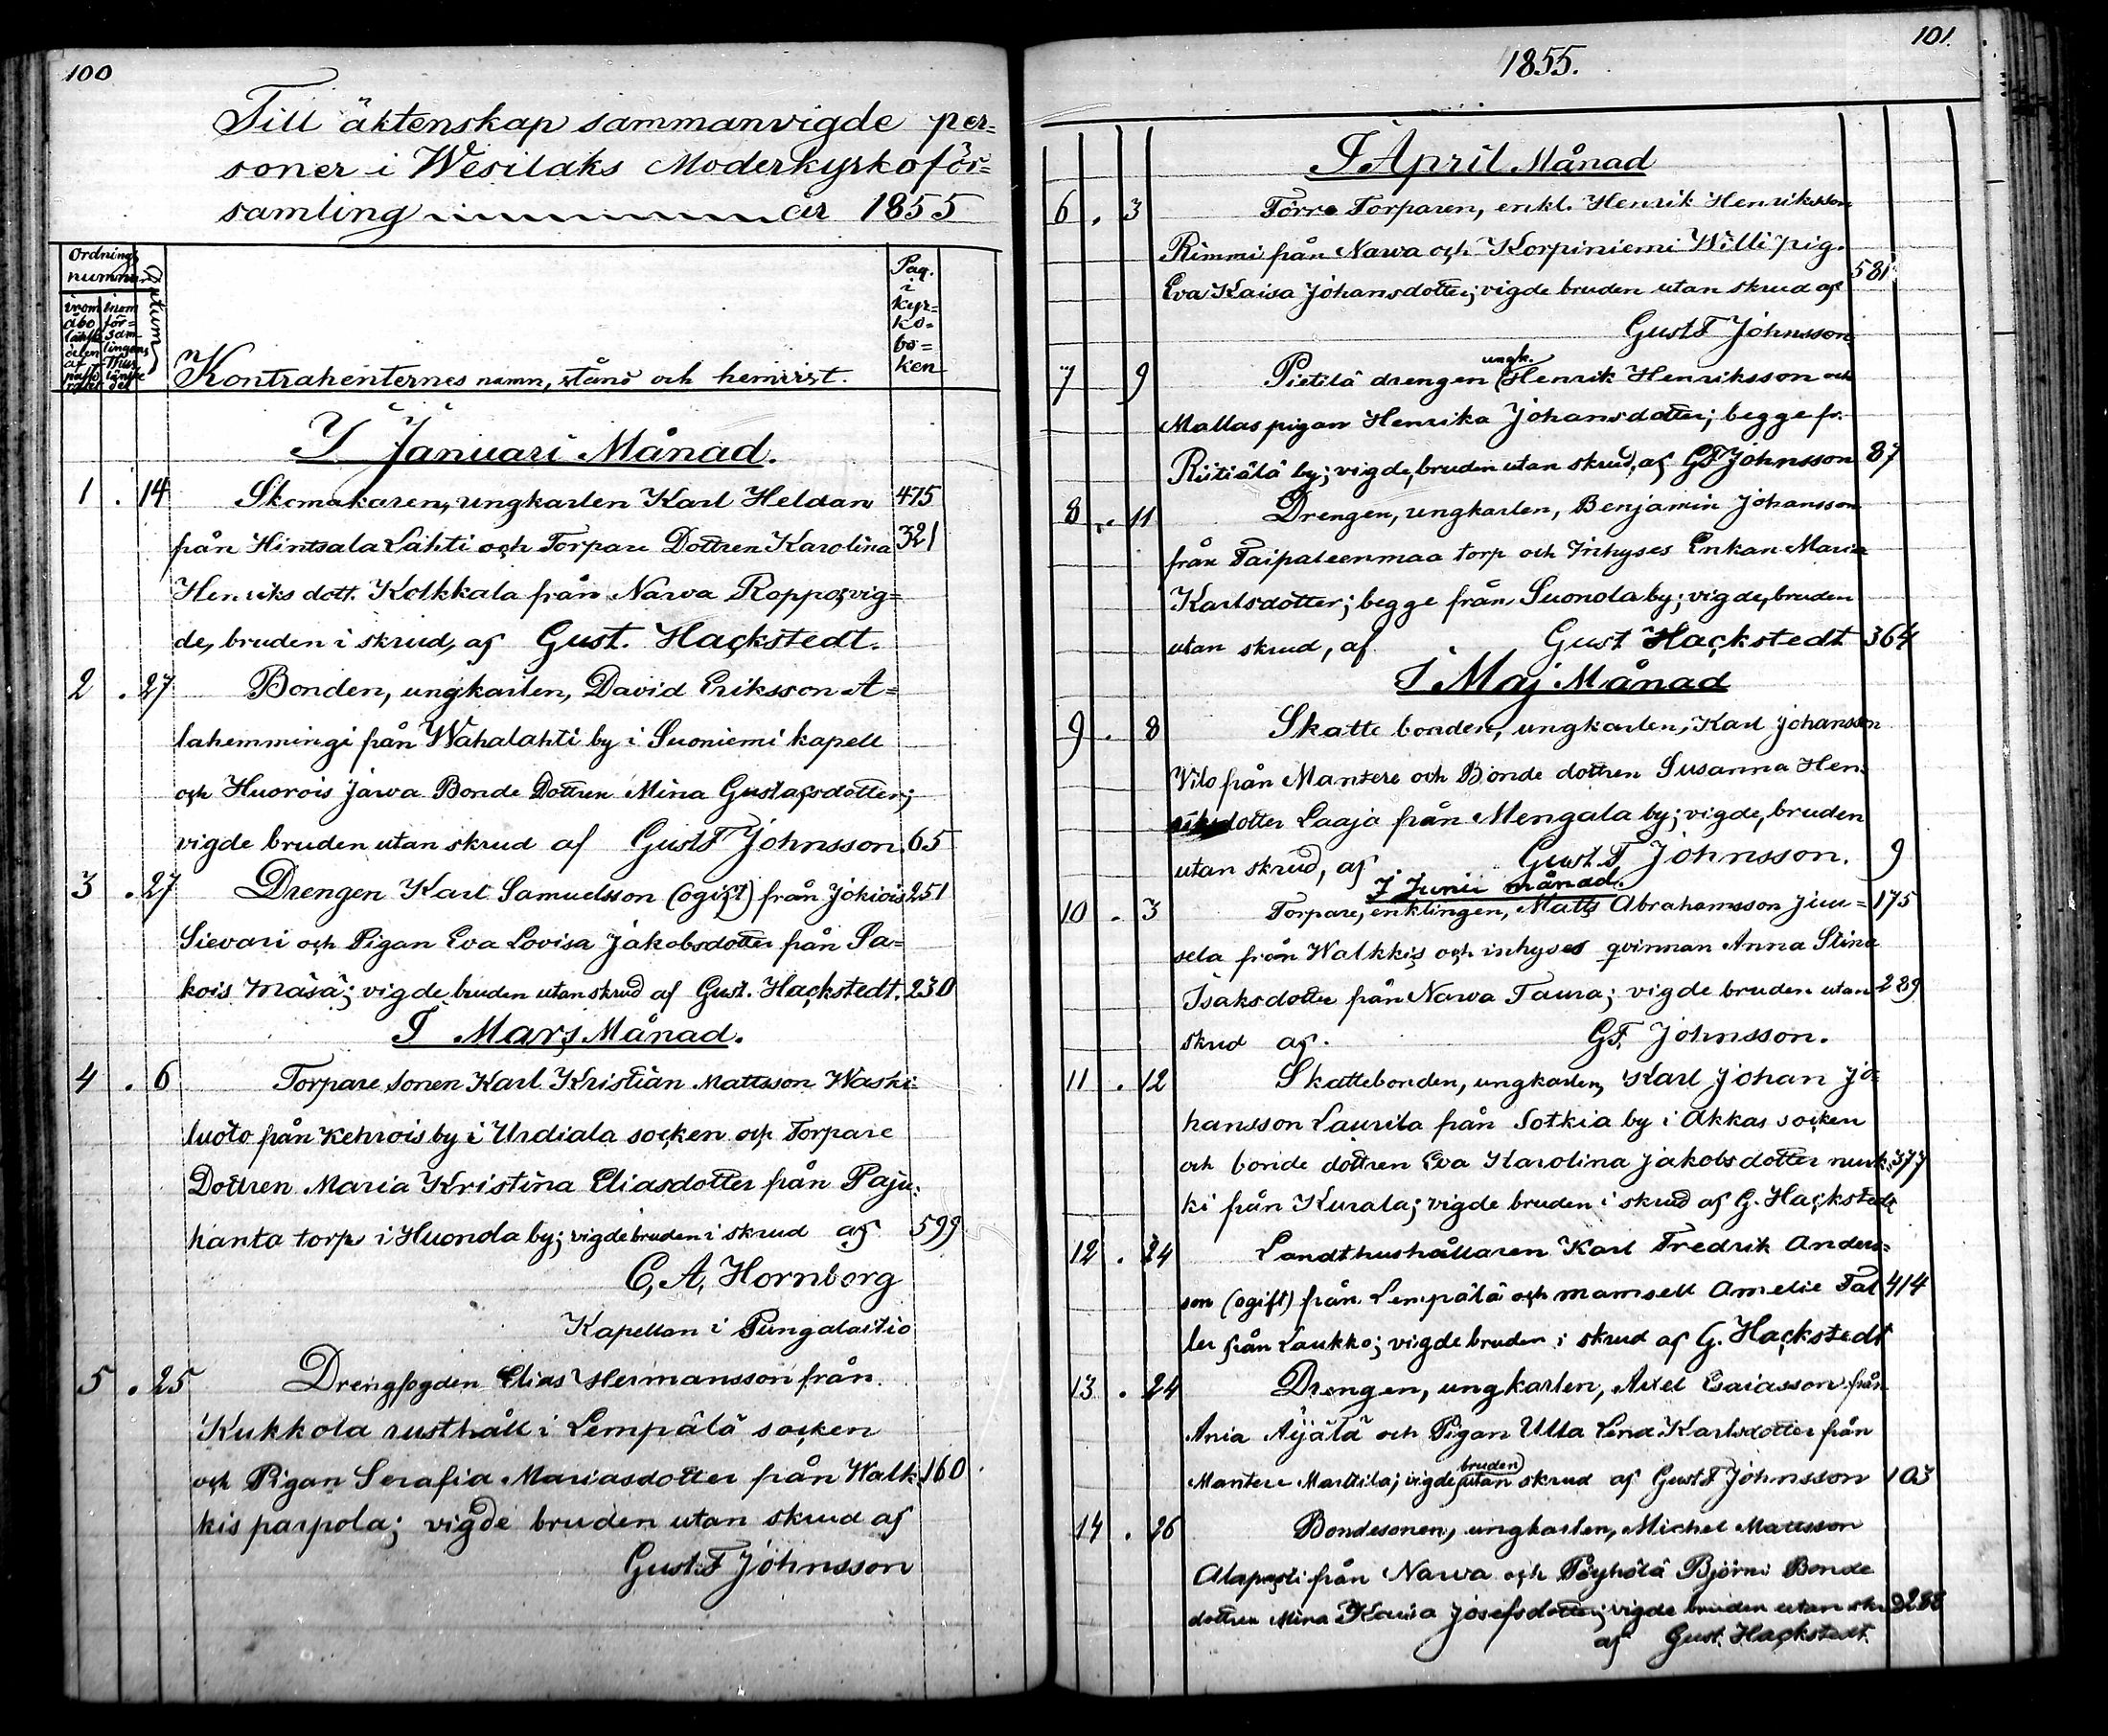 100
Till äktenskap sammanvigde per=
soner i Wesilaks Moderkyrkoför=
samling år 1855
Ordnings nummer
inom Åbo läns delen af
inom för=sam=lingens
Datum
Kontrahenternes namn, stånd och hemvist.
Pag. i kyr=ko=bo=ken
I Januari Månad.
1 . 14 Skomakaren, ungkarlen Karl Heldan 475
från Hintsala Lahti och Torpare Dottren Karolina 321
Henriksdott. Kolkkala från Narva Roppo; vig=
de, bruden i skrud, af Gust. Hackstedt.
2 . 27 Bonden, ungkarlen, David Eriksson A=
lahemmingi från Wahalahti by i Suoniemi kapell
och Huorois Jarva Bonde Dottren Mina Gustafsdotter;
vigde bruden utan skrud af Gust F Johnsson. 65
3 . 27 Drengen Karl Samuelsson (ogift) från Jokiois 251
Sievari och Pigan Eva Lovisa Jakobsdotter från Sa=
kois Mäsä; vigde bruden utan skrud af Gust. Hackstedt. 230
I Mars Månad.
4 . 6 Torpare sonen Karl Kristian Mattsson Waski=
luoto från Kehrois by i Urdiala socken och Torpare
Dottren Maria Kristina Eliasdotter från Paju=
hanta torp i Huonola by; vigde bruden i skrud af 599
C. A. Hornborg
Kapellan i Pungalaitio
5 . 25 Drengfogden Elias Hermansson från
Kukkola rusthåll i Lempälä socken
och Pigan Serafia Mariasdotter från Walk= 160
kis parpola; vigde bruden utan skrud af
Gust. F Johnsson
101.
1855.
I April Månad
6 . 3 Förre Torparen, enkl. Henrik Henriksson
Rimmi från Narva och Korpiniemi Willi pig.
Eva Kaisa Johansdotter; vigde bruden utan skrud af 581
Gust F Johnsson
7 9 Pietilä drengen ungk. Henrik Henriksson och
Mallas pigan Henrika Johansdotter; begge fr.
Riitiälä by; vigde, bruden utan skrud, af GF Johnsson 87
8 . 11 Drengen, ungkarlen, Benjamin Johansson
från Taipaleenmaa torp och Inhyses Enkan Maria
Karlsdotter; begge från Suonola by; vigde, bruden
utan skrud, af Gust Hackstedt 364
I Maj Månad
9 . 8 Skatte bonden, ungkarlen, Karl Johansson
Vilo från Mantere och Bonde dottren Susanna Hen=
riksdotter Laaja från Mengala by; vigde, bruden
utan skrud, af Gust. F Johnsson. 9
I Junii månad.
10 . 3 Torpare, enklingen, Matts Abrahamsson Juu= 175
sela från Walkkis och inhyses qvinnan Anna Stina
Isaksdotter från Narva Taura; vigde bruden utan 289
skrud af. GF. Johnsson.
11 . 12 Skattebonden, ungkarlen, Karl Johan Jo=
hansson Laurila från Sotkia by i Akkas socken
och bonde dottren Eva Karolina Jakobsdotter nurk= 377
ki från Kurala; vigde bruden i skrud af G. Hackstedt
12 . 24 Landthushållaren Karl Fredrik Anders=
son (ogift) från Lempälä och mamsell Amelie Tal 414
ler från Laukko; vigde bruden i skrud af G. Hackstedt
13 . 24 Drengen, ungkarlen, Axel Esaiasson från
Ania Äijälä och Pigan Ulla Lena Karlsdotter från
Mantere Marttila; vigde bruden utan skrud af Gust F Johnsson 103
14 . 26 Bondesonen, ungkarlen, Michel Mattsson
Alapasti från Narva och Pöyhölä Björni Bonde
dottren Mina Kaisa Josefsdotter; vigde bruden utan skrud 288
af Gust. Hackstedt.